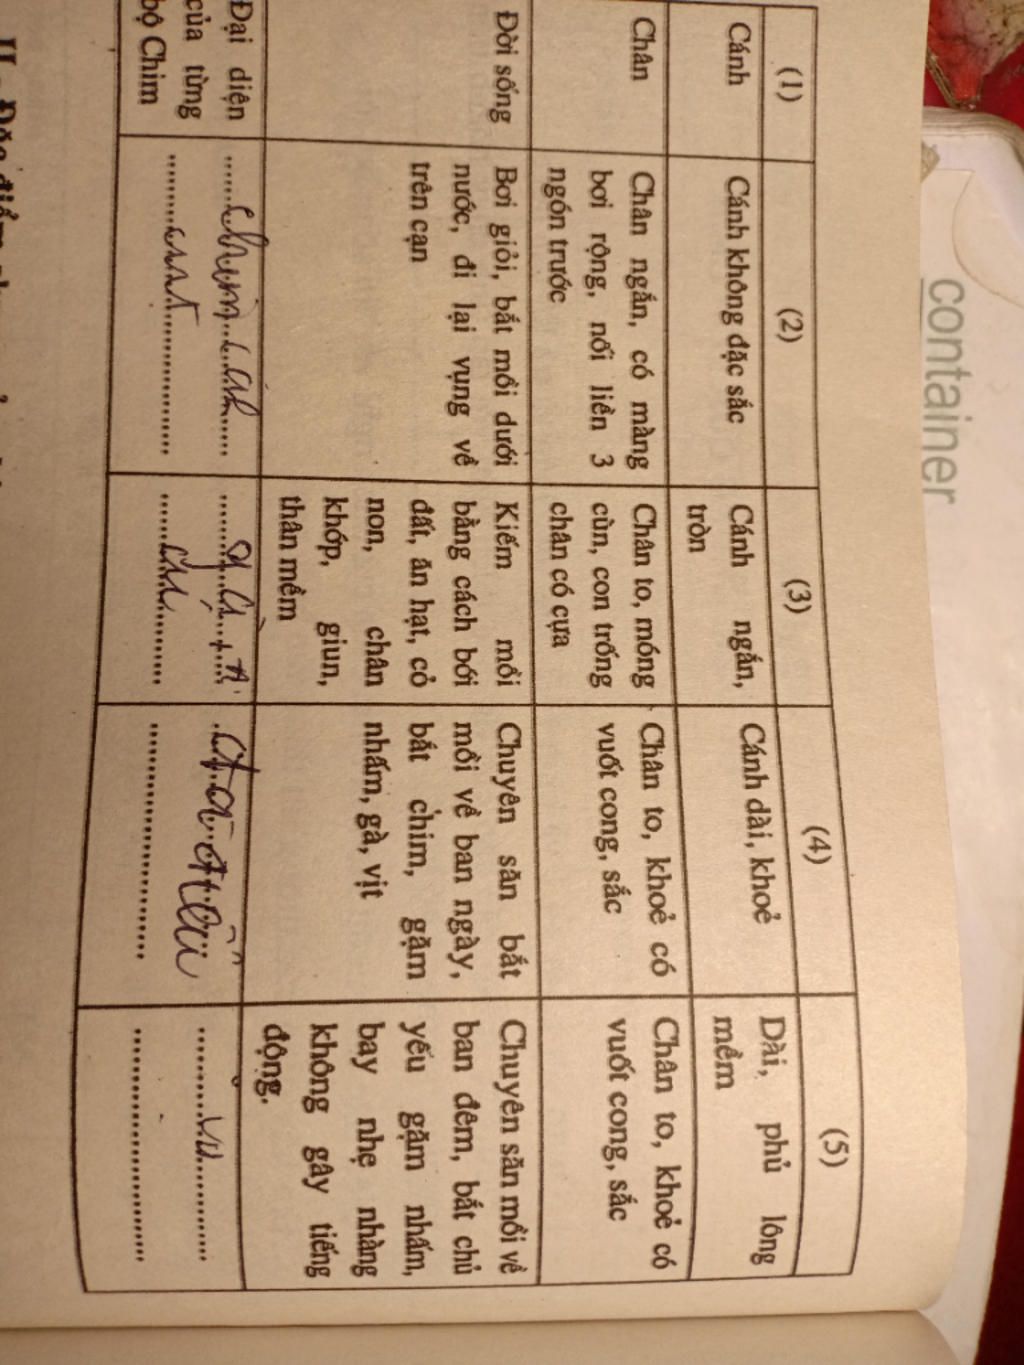 container
(1)
(2)
(3)
(4)
(5)
Cánh
Cánh không đặc sắc
Cánh ngắn,
tròn
Cánh dài, khoẻ
Dài, phủ lông
mềm
Chân
Chân ngắn, có màng
bơi rộng, nối liền 3
ngón trước
Chân to, móng
cùn, con trống
chân có cựa
Chân to, khoẻ có
vuốt cong, sắc
Chân to, khoẻ có
vuốt cong, sắc
Đời sống
Bơi giỏi, bắt mồi dưới
nước, đi lại vụng về
trên cạn
Kiếm mồi
bằng cách bới
đất, ăn hạt, cỏ
non, chân
khớp, giun,
thân mềm
Chuyên săn bắt
mồi về ban ngày,
bắt chim, gặm
nhấm, gà, vịt
Chuyên săn mồi về
ban đêm, bắt chủ
yếu gặm nhấm,
bay nhẹ nhàng
không gây tiếng
động.
Đại diện
của từng
bộ Chim
cụt
II - Đặc điểm